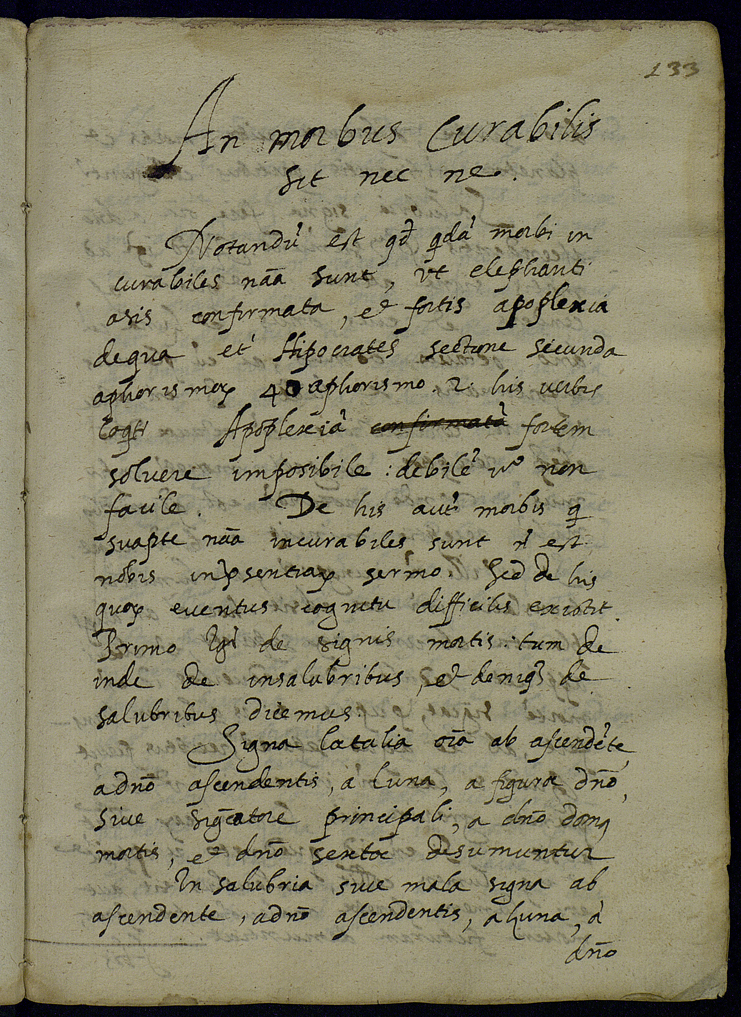 133
An morbus Curabilis
sit nec ne.
Notandū est qd̄ qdā morbi in
curabiles nāa sunt, vt elephanti
asis confirmata, et fortis apoplexia
dequa et Hipocrates sectione secunda
aphorismoꝝ 40 aphorismo .2. his verbis
Apoplexiā confirmatā fortem
soluere imposibile : debilē vº non
facile. De his aut̄ morbis q̄
suapte nāa incurabiles sunt n̄ est
nobis inpsentiaꝝ sermo. Sed de his
quoꝝ euentus cognitu difficilis existit.
Primo Igr̄ de signis mortis : tum de
inde de insalubribus, et deniqꝫ de
salubribus dicemus.
Signa lætalia oīa ab ascendēte,
a dnō ascendentis, a Luna, a figura dnō,
siue sigcatore principali, a dnō domꝰ
mortis, et dnō sextæ desumuntur
In salubria siue mala signa ab
ascendente, a dnō ascendentis, a Luna, a
dnō